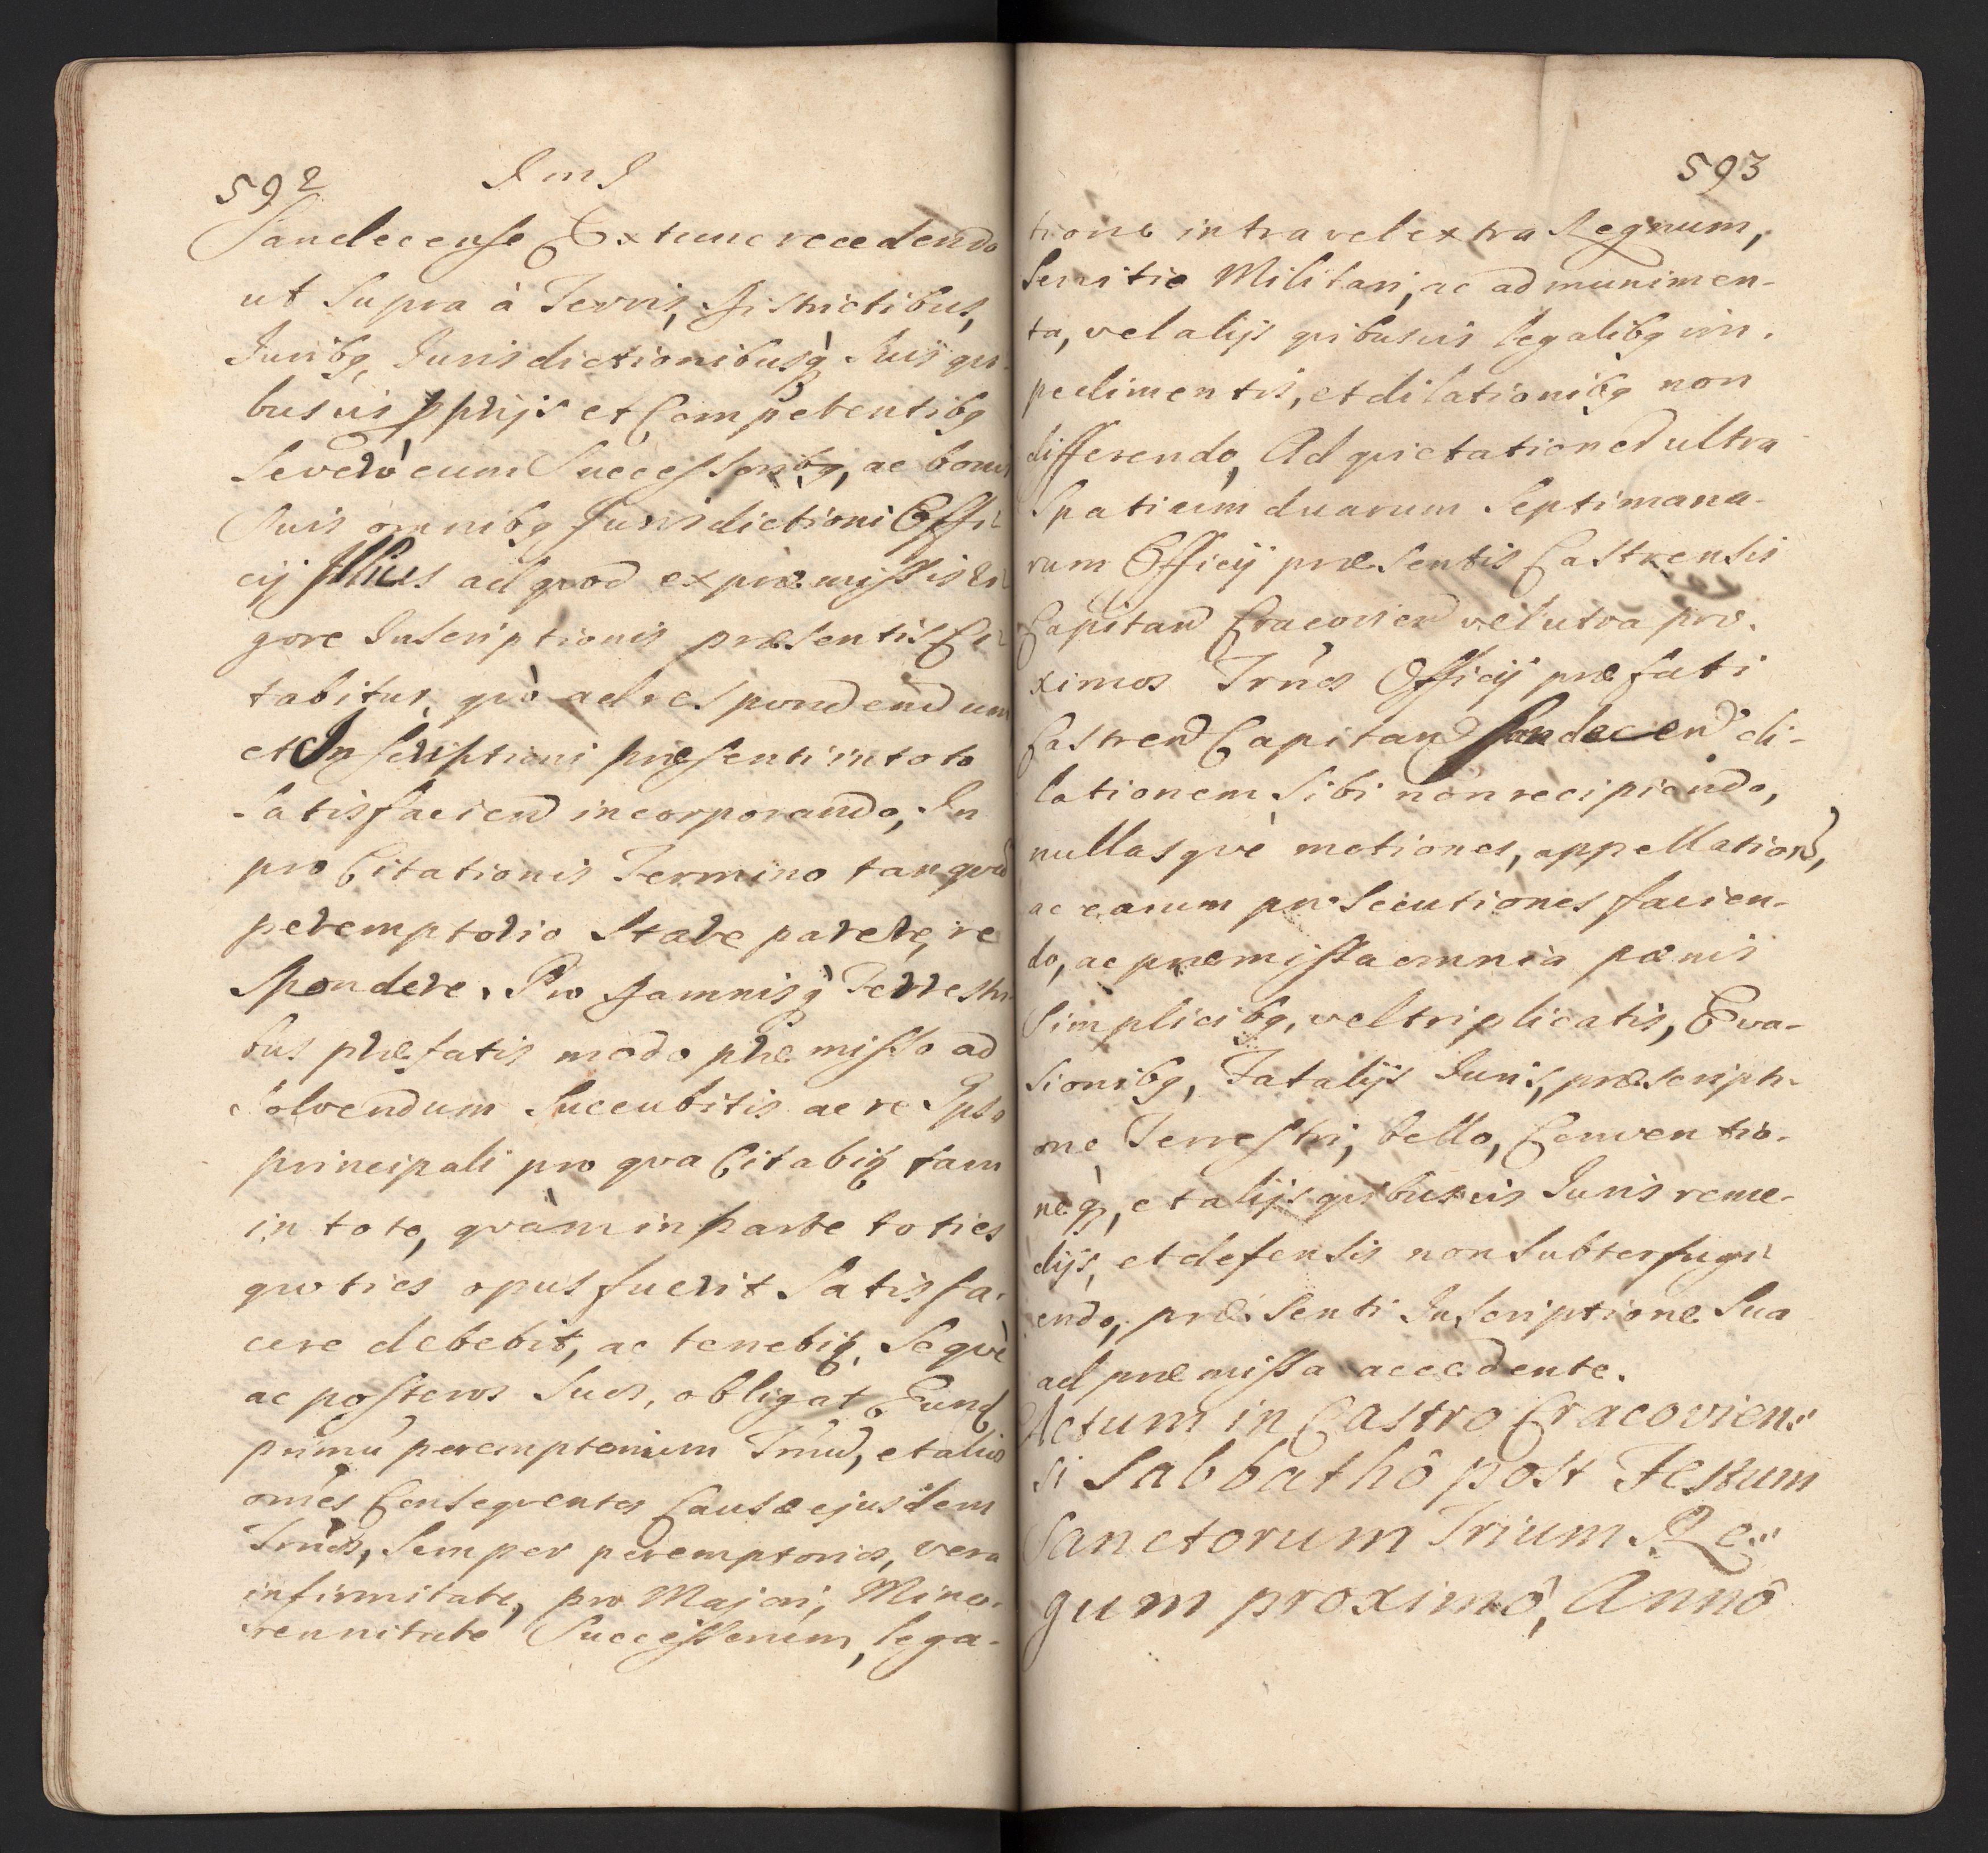 592
J m J
Sandecense Extunc recedendo
ut Supra à Terris, Districtibus,
Juribq, Jurisdictionibusq̀ Suis qui-
busvis pprijs et Competentibq
Severò cum Successoribq, ac bonis
Suis omnibq Jurisdictioni Offi-
cij Illius ad quod ex præmissis Vi-
gore Inscriptionis præsentis Ci-
tabitur, qrò ad respondendum
et Inscriptioni præsenti in toto
Satisfaciend incorporando, In
pro Citationis Termino tanqvā
peremptorio Stare parere, re
Spondere. Pro Damnisq̀ Terrestri
bus præfatis modo præmisso ad
Solvendum Succubitis ac re Ipsa
principali pro qva Citabiq tam
in toto, qvàm in parte toties
quoties opus fuerit Satisfa-
cere debebit, ac tenebiq, Seqvè
ac posteros Suos, obligat, Eund
primū peremptorium Trnū, et alios
omēs Conseqventes Causæ ejusdem
Trnōs, Semper peremptorios, vera
infirmitate, pro Majori, Mino-
rennitate Successorum, lega-
593
tione intra vel extra Regnum,
Servitio Militari, ac ad munimen-
ta, vel alijs qvibusvis legalibq im-
pedimentis, et dilationibq non
differendo, Ad qvietationed ultra
Spatium duarum Septimana-
rum Officij præsentis Castrensis
Capitan Cracovien vel utra pro-
ximos Trnōs Officij præfati
Castren Capitan Sandecen di-
lationem Sibi non recipiendo,
nullasqvè motiones, appellation,
ac earum prosecutiones facien-
do, ac præmissa omnia pœnis
Simplicibq, vel triplicatis, Eva-
sionibq, Fatalijs Juris, præscripti-
one Terrestri, bello, Conventio-
neq, et alijs qvibusvis Juris reme-
dijs, et defensis non Subterfugi-
endo, præsenti Inscriptione Sua
ad præmissa accedente.
Actum in Castro Cracovien-
si Sabbathô post Festum
Sanctorum Trium Re-
gum proximô, Annô